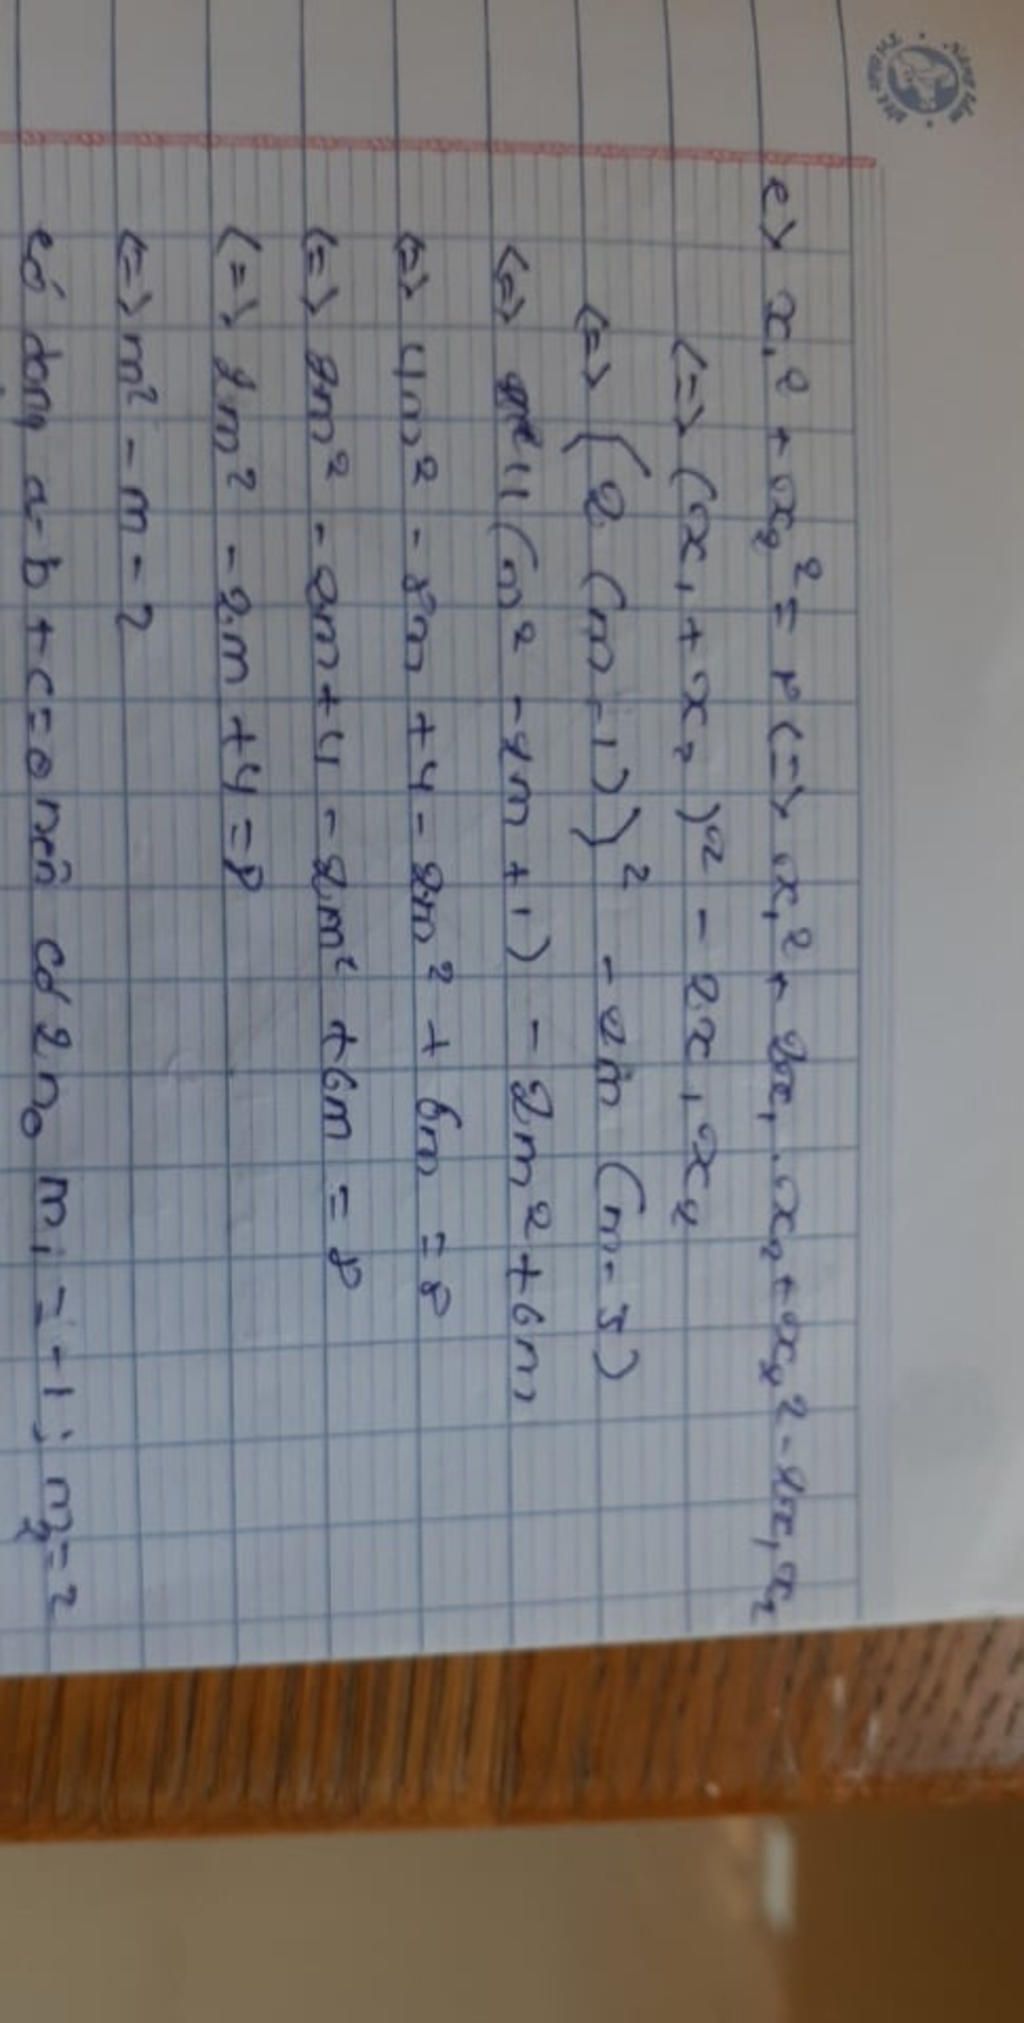 e) x₁² + x₂² = 8 <=> x₁² + 2x₁.x₂ + x₂² - 2x₁x₂
<=> (x₁ + x₂)² - 2x₁x₂
<=> (2(m-1))² - 2m(m-3)
<=> 4(m² - 2m + 1) - 2m² + 6m
<=> 4m² - 8m + 4 - 2m² + 6m = 8
<=> 2m² - 2m + 4 - 2m² + 6m = 8
<=> 2m² - 2m + 4 = 8
<=> m² - m - 2
có dạng a-b+c=0 nên có 2 n₀ m₁ = -1; m₂ = 2